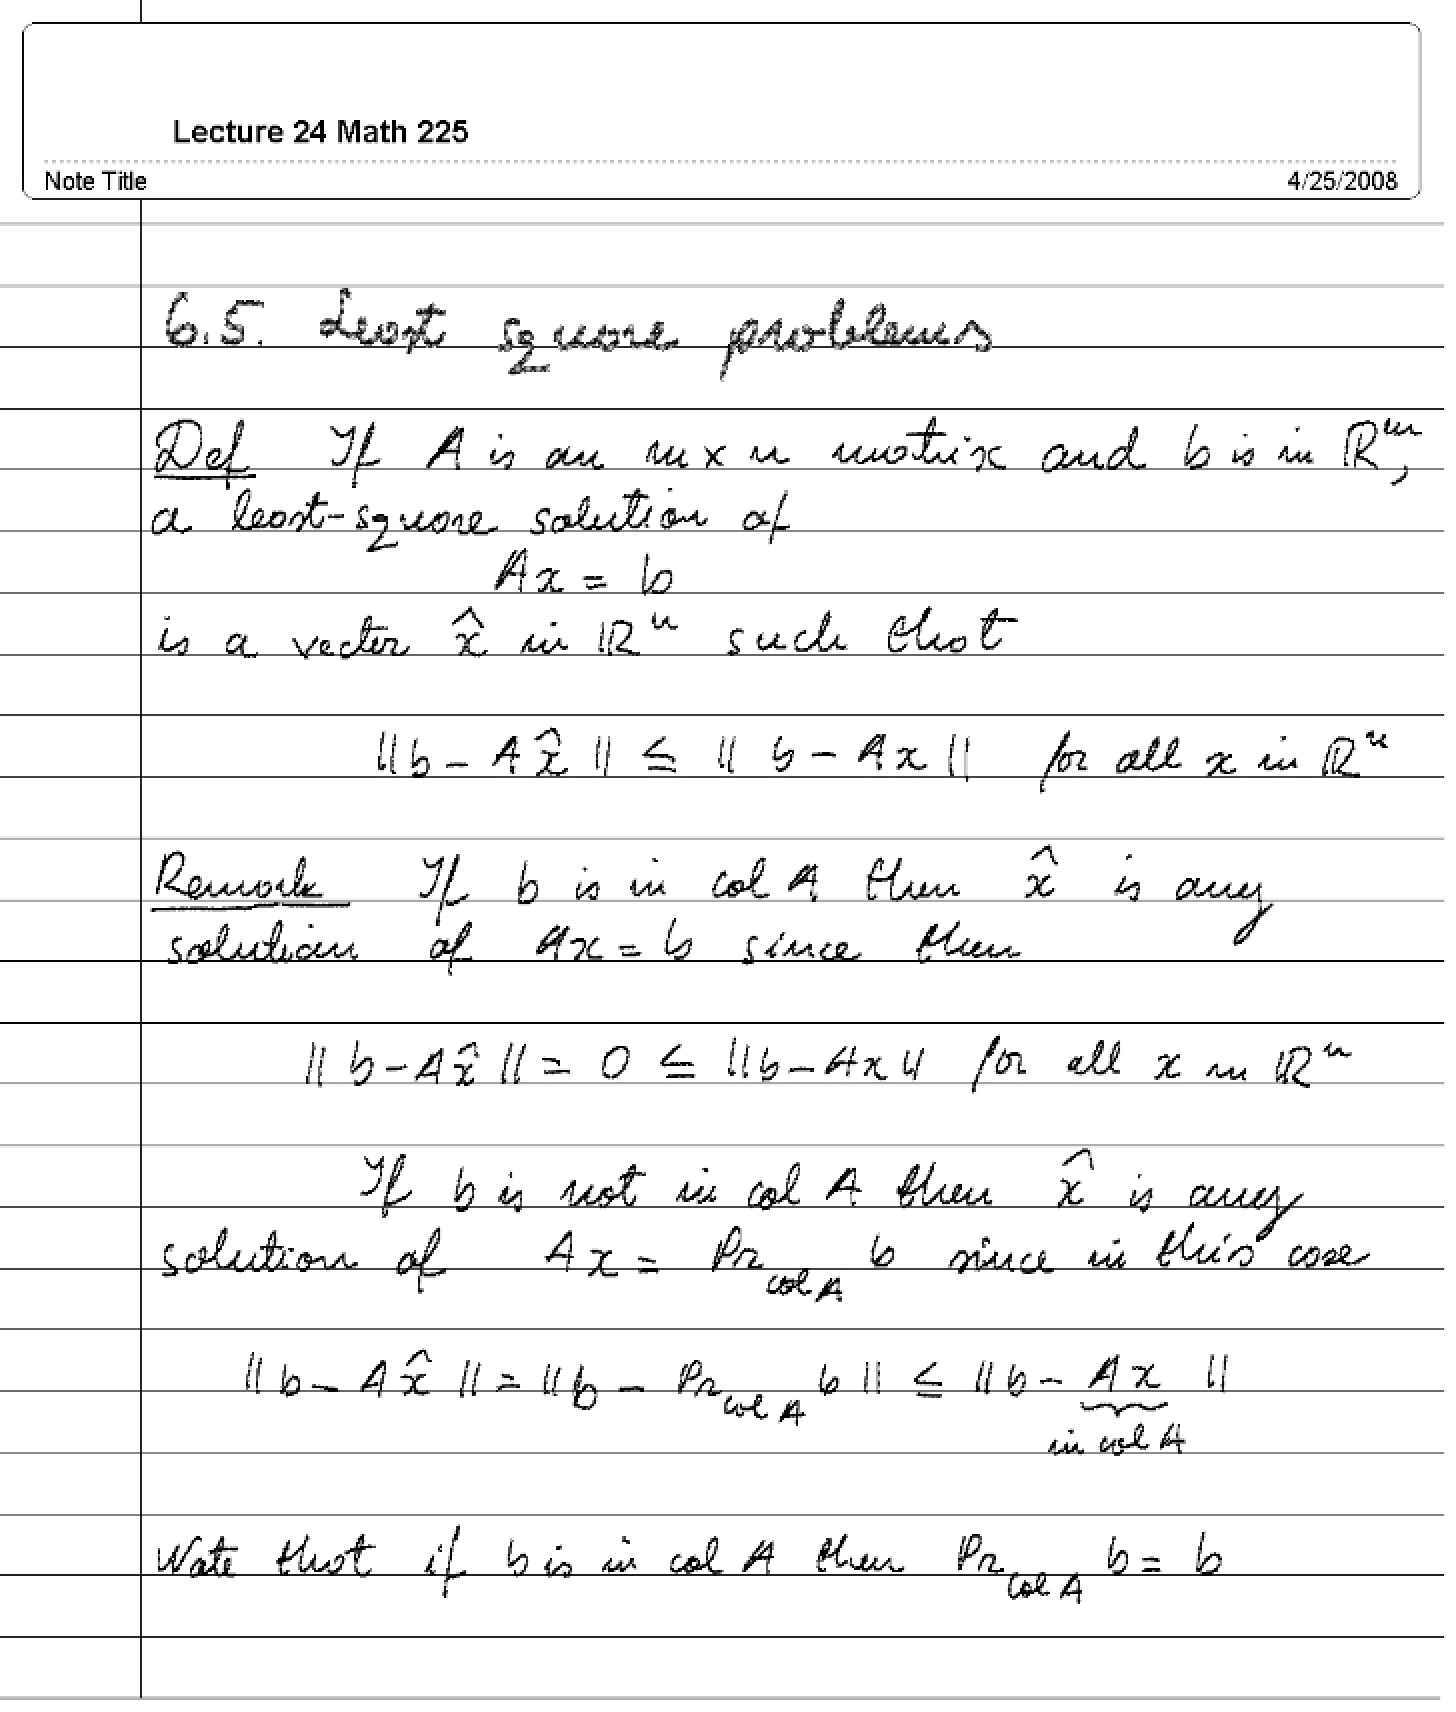 Lecture 24 Math 225
Note Title 4/25/2008
6.5. Least square problems
Def If A is an m x n matrix and b is in ℝᵐ,
a least-square solution of
Ax = b
is a vector x̂ in ℝⁿ such that
‖b - Ax̂‖ ≤ ‖b - Ax‖ for all x in ℝⁿ
Remark If b is in col A then x̂ is any
solution of Ax = b since then
‖b - Ax̂‖ = 0 ≤ ‖b - Ax‖ for all x in ℝⁿ
If b is not in col A then x̂ is any
solution of Ax = Pr_col A b since in this case
‖b - Ax̂‖ = ‖b - Pr_col A b‖ ≤ ‖b - Ax‖
in col A
Note that if b is in col A then Pr_col A b = b